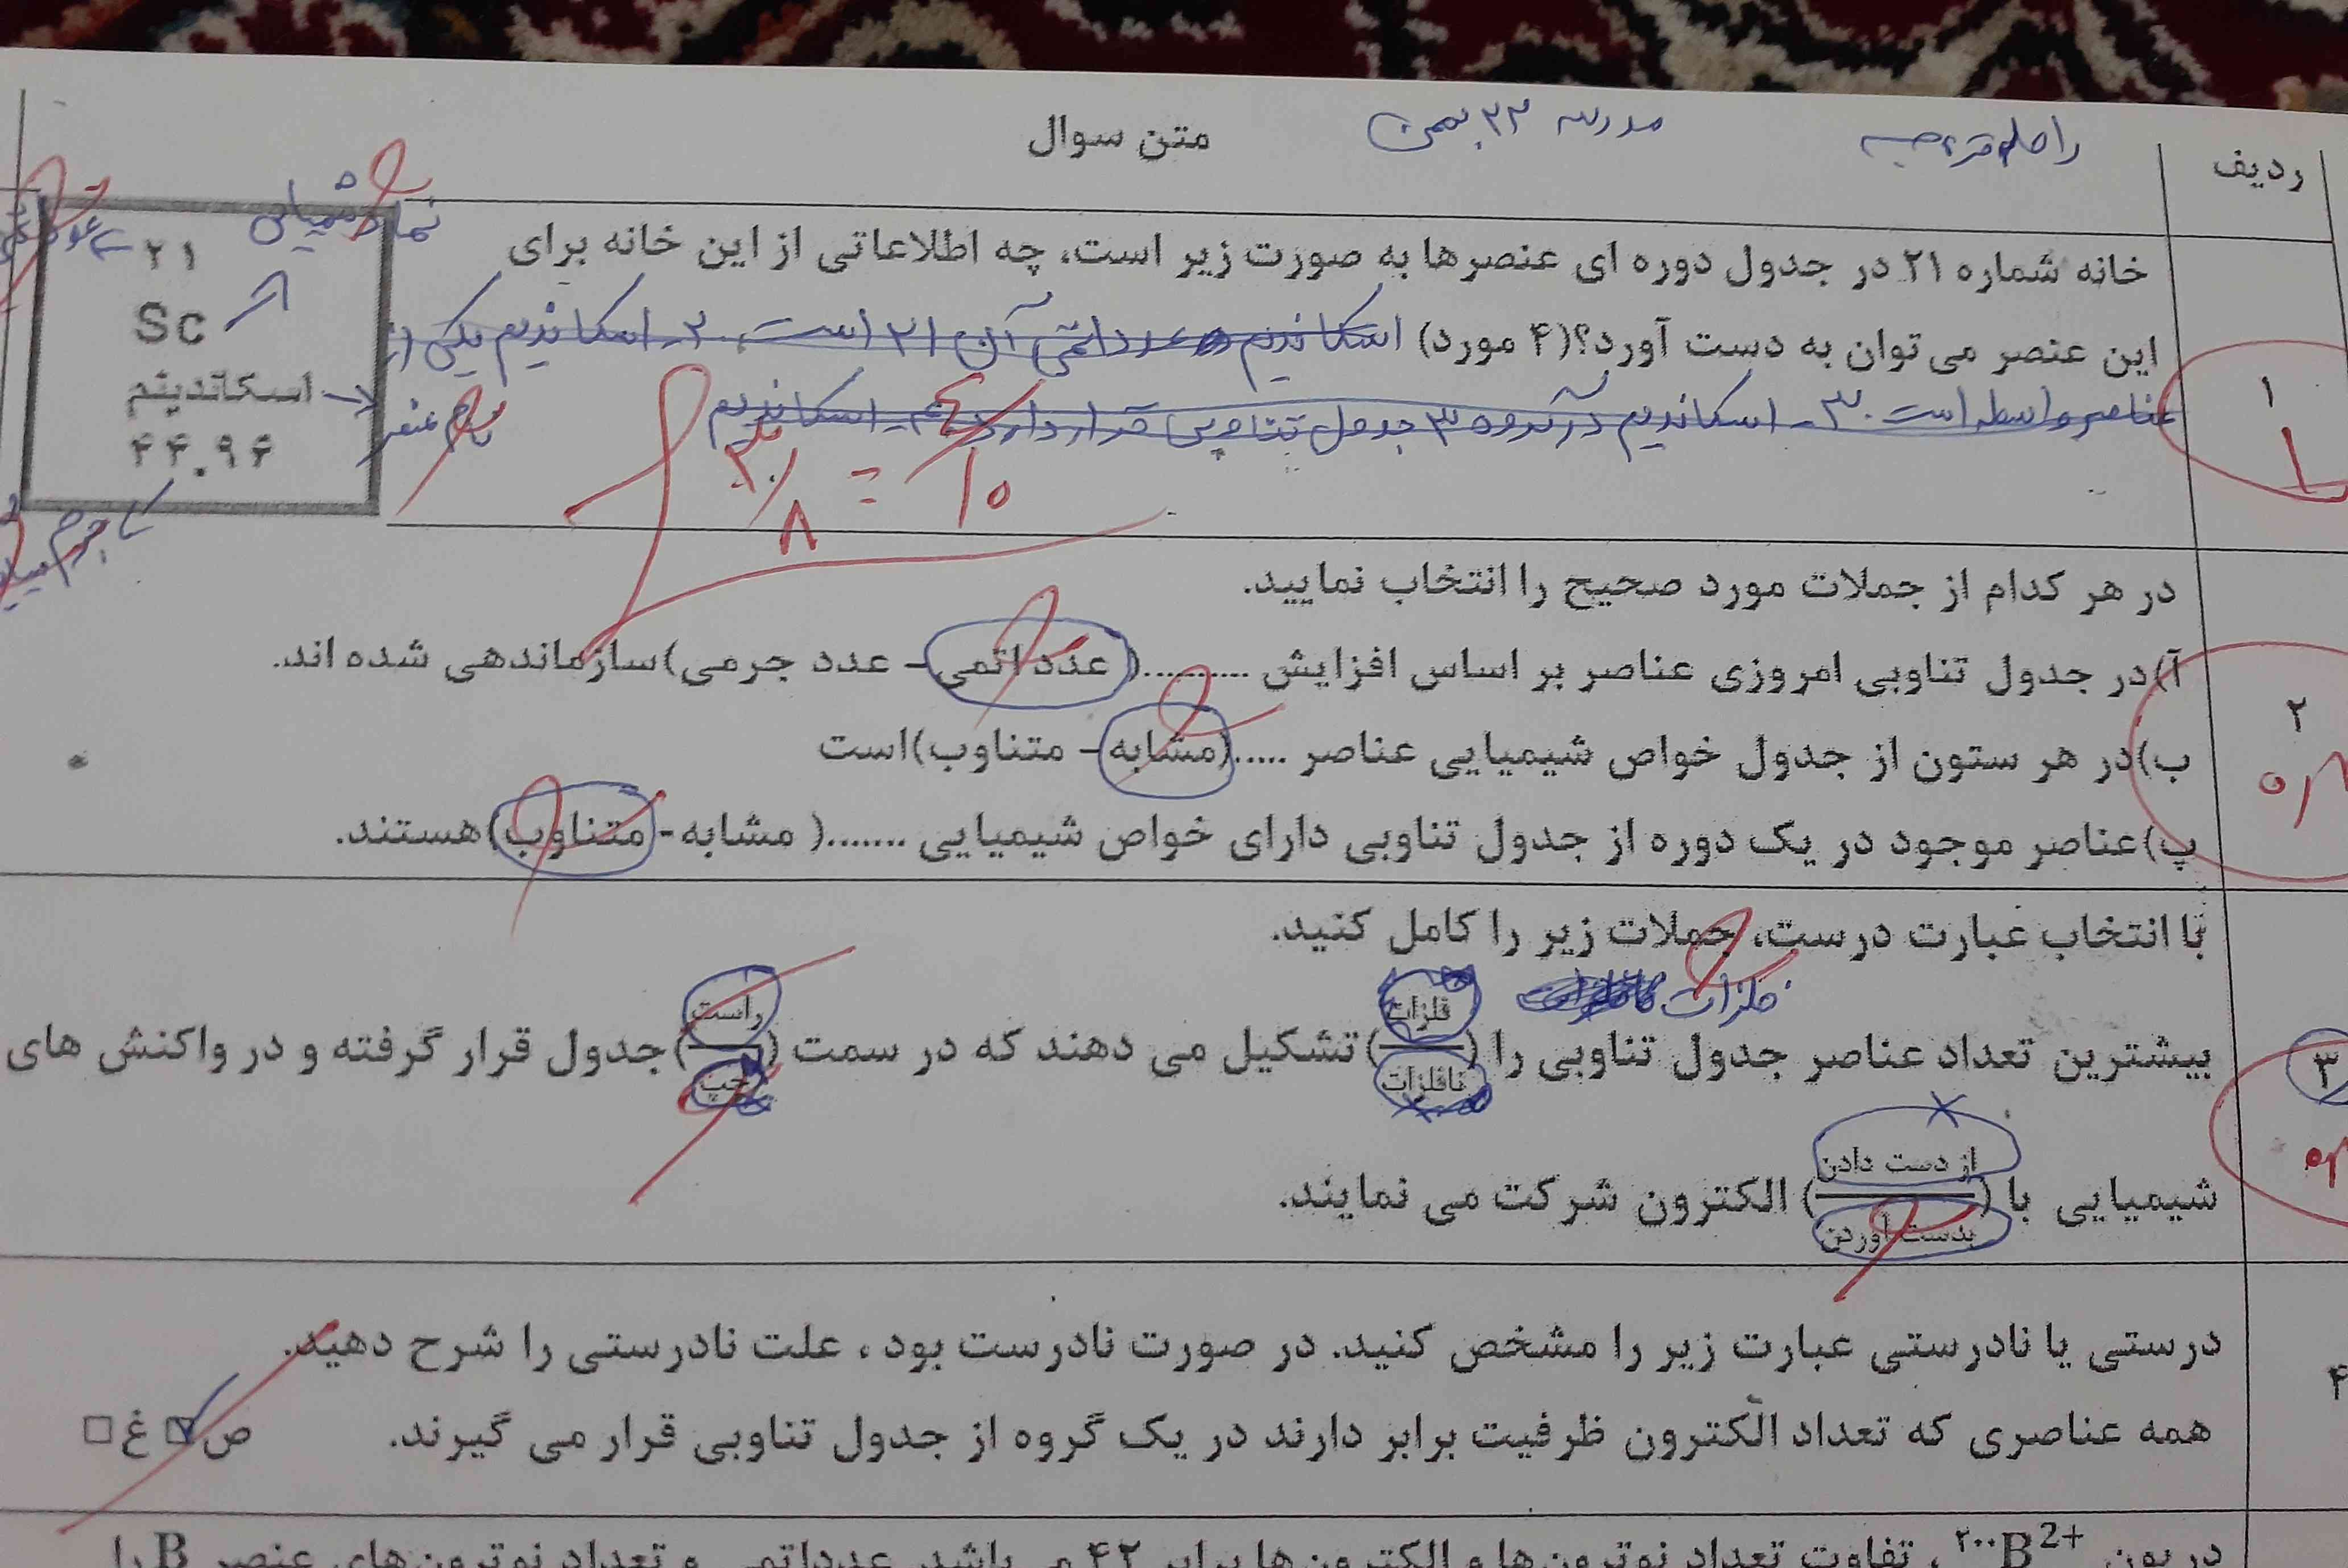 ردیف
متن سوال
مدرسه ۲۲ بهمن
۱
خانه شماره ۲۱ در جدول دوره ای عنصرها به صورت زیر است، چه اطلاعاتی از این خانه برای
این عنصر می توان به دست آورد؟(۴ مورد) اسکاندیم عدد اتمی آن ۲۱ است. ۲ـ اسکاندیم یکی از
عناصر واسطه است. ۳ـ اسکاندیم در گروه ۳ جدول تناوبی قرار دارد ۴ـ اسکاندیم
۲۱
نماد شیمیایی
Sc
اسکاندیم
نام عنصر
۴۴.۹۶
جرم
۱
۲
در هر کدام از جملات مورد صحیح را انتخاب نمایید.
آ)در جدول تناوبی امروزی عناصر بر اساس افزایش ..........( عدد اتمی – عدد جرمی)سازماندهی شده اند.
ب)در هر ستون از جدول خواص شیمیایی عناصر .....(مشابه – متناوب)است
پ)عناصر موجود در یک دوره از جدول تناوبی دارای خواص شیمیایی .......( مشابه- متناوب)هستند.
۳
با انتخاب عبارت درست، جملات زیر را کامل کنید.
فلزات
بیشترین تعداد عناصر جدول تناوبی را (فلزات/نافلزات) تشکیل می دهند که در سمت (راست/چپ)جدول قرار گرفته و در واکنش های
شیمیایی با (از دست دادن/بدست آوردن) الکترون شرکت می نمایند.
۴
درستی یا نادرستی عبارت زیر را مشخص کنید. در صورت نادرست بود ، علت نادرستی را شرح دهید.
همه عناصری که تعداد الکترون ظرفیت برابر دارند در یک گروه از جدول تناوبی قرار می گیرند. ص☑ غ□
در یون ²⁰⁰B²⁺ ، تفاوت تعداد نوترون ها و الکترون ها برابر ۴۲ می باشد. عدداتمی و تعداد نوترون های عنصر B را